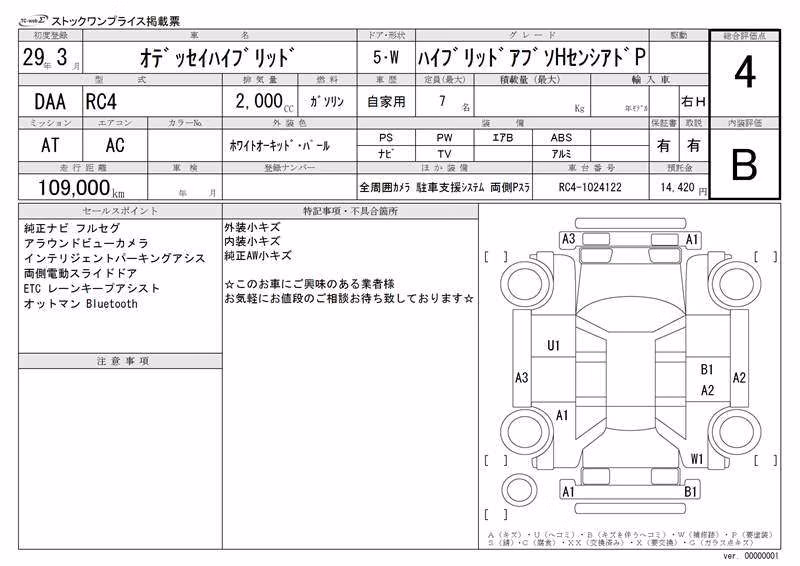 TC-webΣ ストックワンプライス掲載票
初度登録 車名 ドア・形状 グレード 駆動 総合評価点
29年 3月 オデッセイハイブリッド 5・W ハイブリッドアブソHセンシアドP 4
型式 排気量 燃料 車歴 定員(最大) 積載量(最大) 輸入車
DAA RC4 2,000CC ガソリン 自家用 7名 Kg 年モデル 右H
ミッション エアコン カラーNo. 外装色 装備 保証書 取説 内装評価
AT AC ホワイトオーキッド・パール PS PW エアB ABS 有 有 B
ナビ TV アルミ
走行距離 車検 登録ナンバー ほか装備 車台番号 預託金
109,000km 年 月 全周囲カメラ 駐車支援システム 両側Pスラ RC4-1024122 14,420円
セールスポイント
純正ナビ フルセグ
アラウンドビューカメラ
インテリジェントパーキングアシス
両側電動スライドドア
ETC レーンキープアシスト
オットマン Bluetooth
注意事項
特記事項・不具合箇所
外装小キズ
内装小キズ
純正AW小キズ
☆このお車にご興味のある業者様
お気軽にお値段のご相談お待ち致しております☆
A3 A1
[ ] [ ]
U1
B1
A3 A2 A2
A1
W1
[ ] [ ]
A1 B1
[ ]
A(キズ)・U(ヘコミ)・B(キズを伴うヘコミ)・W(補修跡)・P(要塗装)
S(錆)・C(腐食)・XX(交換済み)・X(要交換)・G(ガラス点キズ)
ver. 00000001